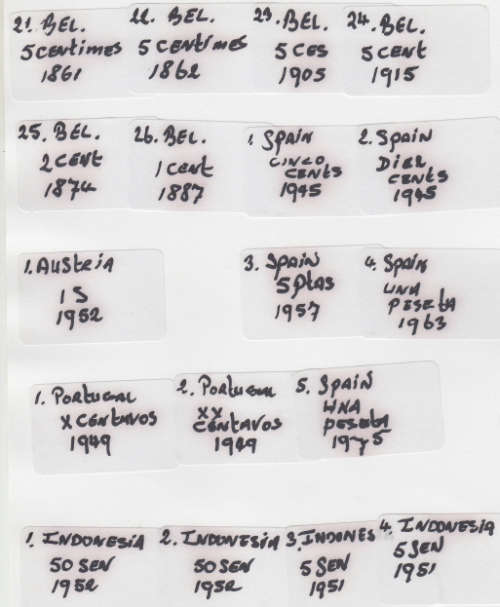 21. BEL.
5 CENTIMES
1861
22. BEL.
5 CENTIMES
1862
23. BEL.
5 CES
1905
24. BEL.
5 CENT
1915
25. BEL.
2 CENT
1874
26. BEL.
1 CENT
1887
1. SPAIN
CINCO
CENTS
1945
2. SPAIN
DIEZ
CENTS
1945
1. AUSTRIA
1 S
1952
3. SPAIN
5 PtAS
1957
4. SPAIN
UNA
PESETA
1963
1. PORTUGAL
X CENTAVOS
1949
2. PORTUGAL
XX
CENTAVOS
1949
5. SPAIN
UNA
PESETA
1975
1. INDONESIA
50 SEN
1952
2. INDONESIA
50 SEN
1952
3. INDONES
5 SEN
1951
4. INDONESIA
5 SEN
1951